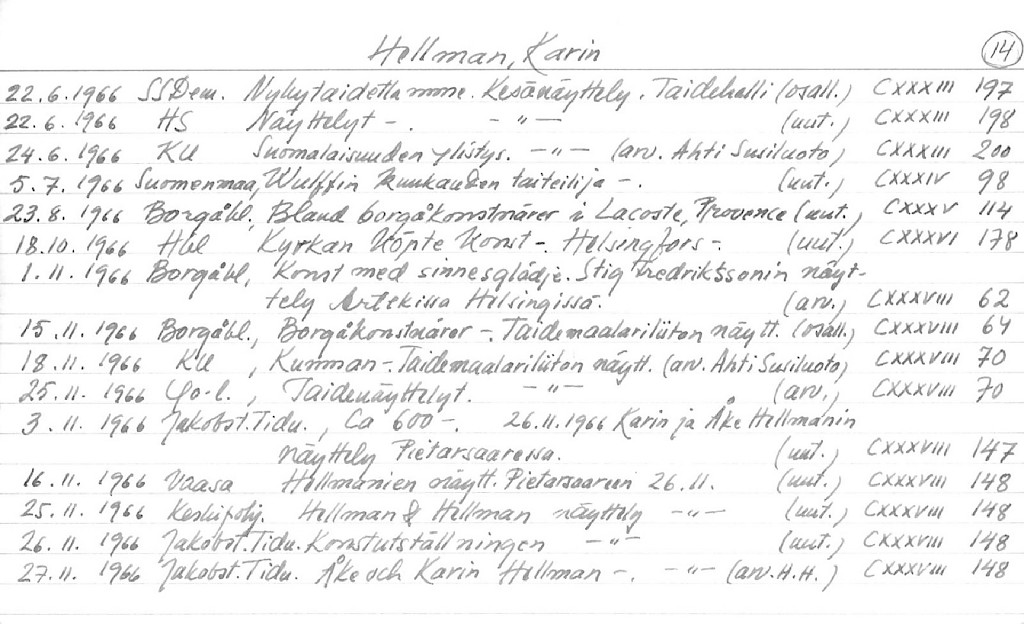 Hellman, Karin 14
22.6.1966 SSDem. Nykytaidettamme. Kesänäyttely. Taidehalli (osall.) CXXXIII 197
22.6.1966 HS Näyttelyt -. - " - (uut.) CXXXIII 198
24.6.1966 KU Suomalaisuuden ylistys. - " - (arv. Ahti Susiluoto) CXXXIII 200
5.7.1966 Suomenmaa, Wulffin kuukauden taiteilija -. (uut.) CXXXIV 98
23.8.1966 Borgåbl. Bland borgåkonstnärer i Lacoste, Provence (uut.) CXXXV 114
18.10.1966 Hbl Kyrkan köpte konst -. Helsingfors -. (uut.) CXXXVI 178
1.11.1966 Borgåbl, Konst med sinnesglädje. Stig Fredrikssonin näyt-
tely Artekissa Helsingissä. (arv.) CXXXVIII 62
15.11.1966 Borgåbl., Borgåkonstnärer -. Taidemaalariliiton näytt. (osall.) CXXXVIII 64
18.11.1966 KU, Kunman -. Taidemaalariliiton näytt. (arv. Ahti Susiluoto) CXXXVIII 70
25.11.1966 Yo-l., Taidenäyttelyt. - " - (arv.) CXXXVIII 70
3.11.1966 Jakobst.Tidn., Ca 600 -. 26.11.1966 Karin ja Åke Hellmanin
näyttely Pietarsaaressa. (uut.) CXXXVIII 147
16.11.1966 Vaasa Hellmanien näytt. Pietarsaareen 26.11. (uut.) CXXXVIII 148
25.11.1966 Keskipohj. Hellman & Hellman näyttely - " - (uut.) CXXXVIII 148
26.11.1966 Jakobst.Tidn. Konstutställningen - " - (uut.) CXXXVIII 148
27.11.1966 Jakobst.Tidn. Åke och Karin Hellman -. - " - (arv. H.H.) CXXXVIII 148